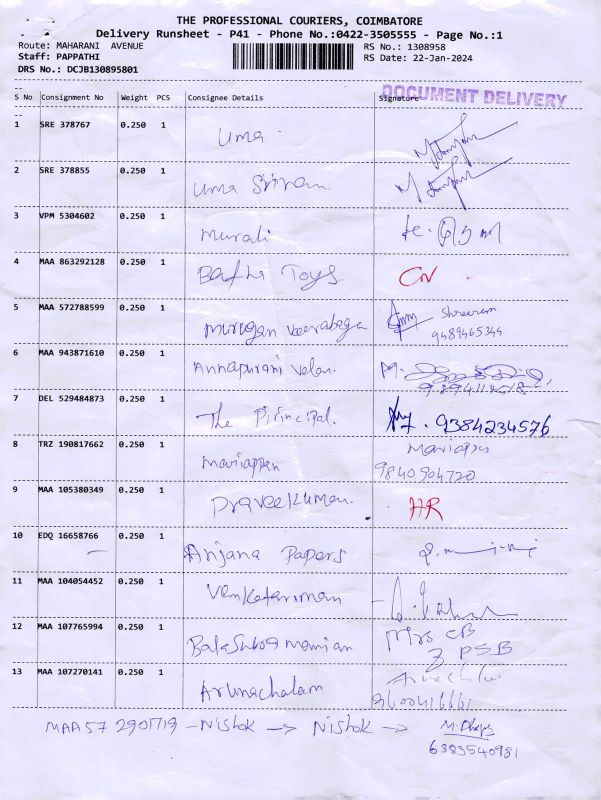 THE PROFESSIONAL COURIERS, COIMBATORE
Delivery Runsheet - P41 - Phone No.:0422-3505555 - Page No.:1
Route: MAHARANI AVENUE
RS No.: 1308958
Staff: PAPPATHI
RS Date: 22-Jan-2024
DRS No.: DCJB130895801
DOCUMENT DELIVERY
S No Consignment No Weight PCS Consignee Details Signature
1 SRE 378767 0.250 1 Uma
2 SRE 378855 0.250 1 Uma Sriram
3 VPM 5304602 0.250 1 Murali
4 MAA 863292128 0.250 1 Toys CN
5 MAA 572788599 0.250 1 Murugan Shreeram
9489465344
6 MAA 943871610 0.250 1 Annapurani Velan.
7 DEL 529484873 0.250 1 The Pirincipal. 9384234576
8 TRZ 190817662 0.250 1 Mariappan Mariappan
9840904720
9 MAA 105380349 0.250 1 PraveeKumar. HR
10 EDQ 16658766 0.250 1 Anjana Papers
11 MAA 104054452 0.250 1 Venkataraman
12 MAA 107765994 0.250 1 BalaSubramanian Mrs CB
3 PSB
13 MAA 107270141 0.250 1 Arunachalam
9600416661
MAA 57 2901719 - Nishok → Nishok →
6383540981